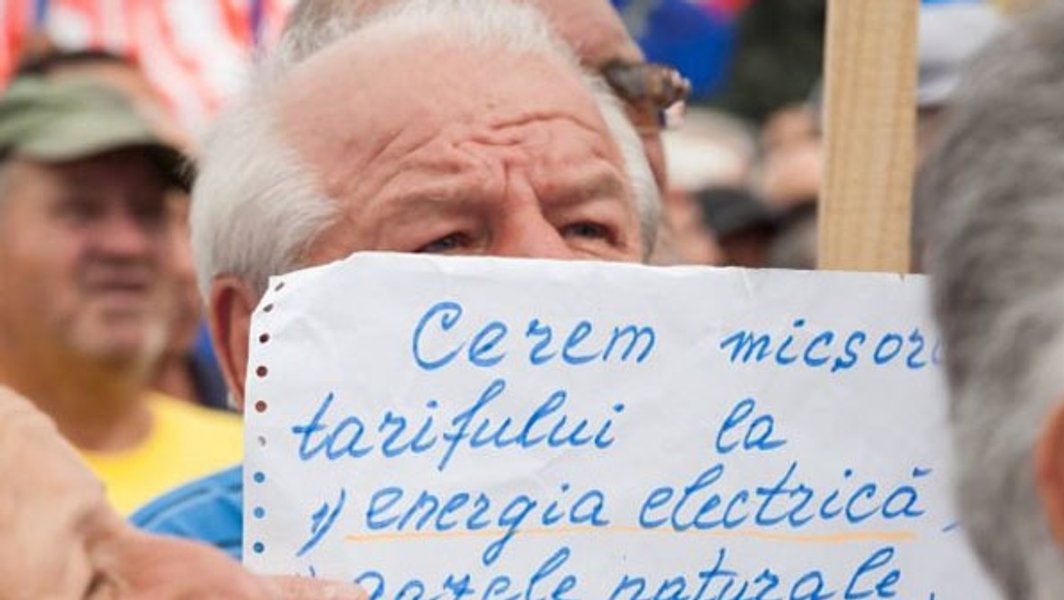 Cerem micșora
tarifului la
1) energia electrică,
gazele naturale,